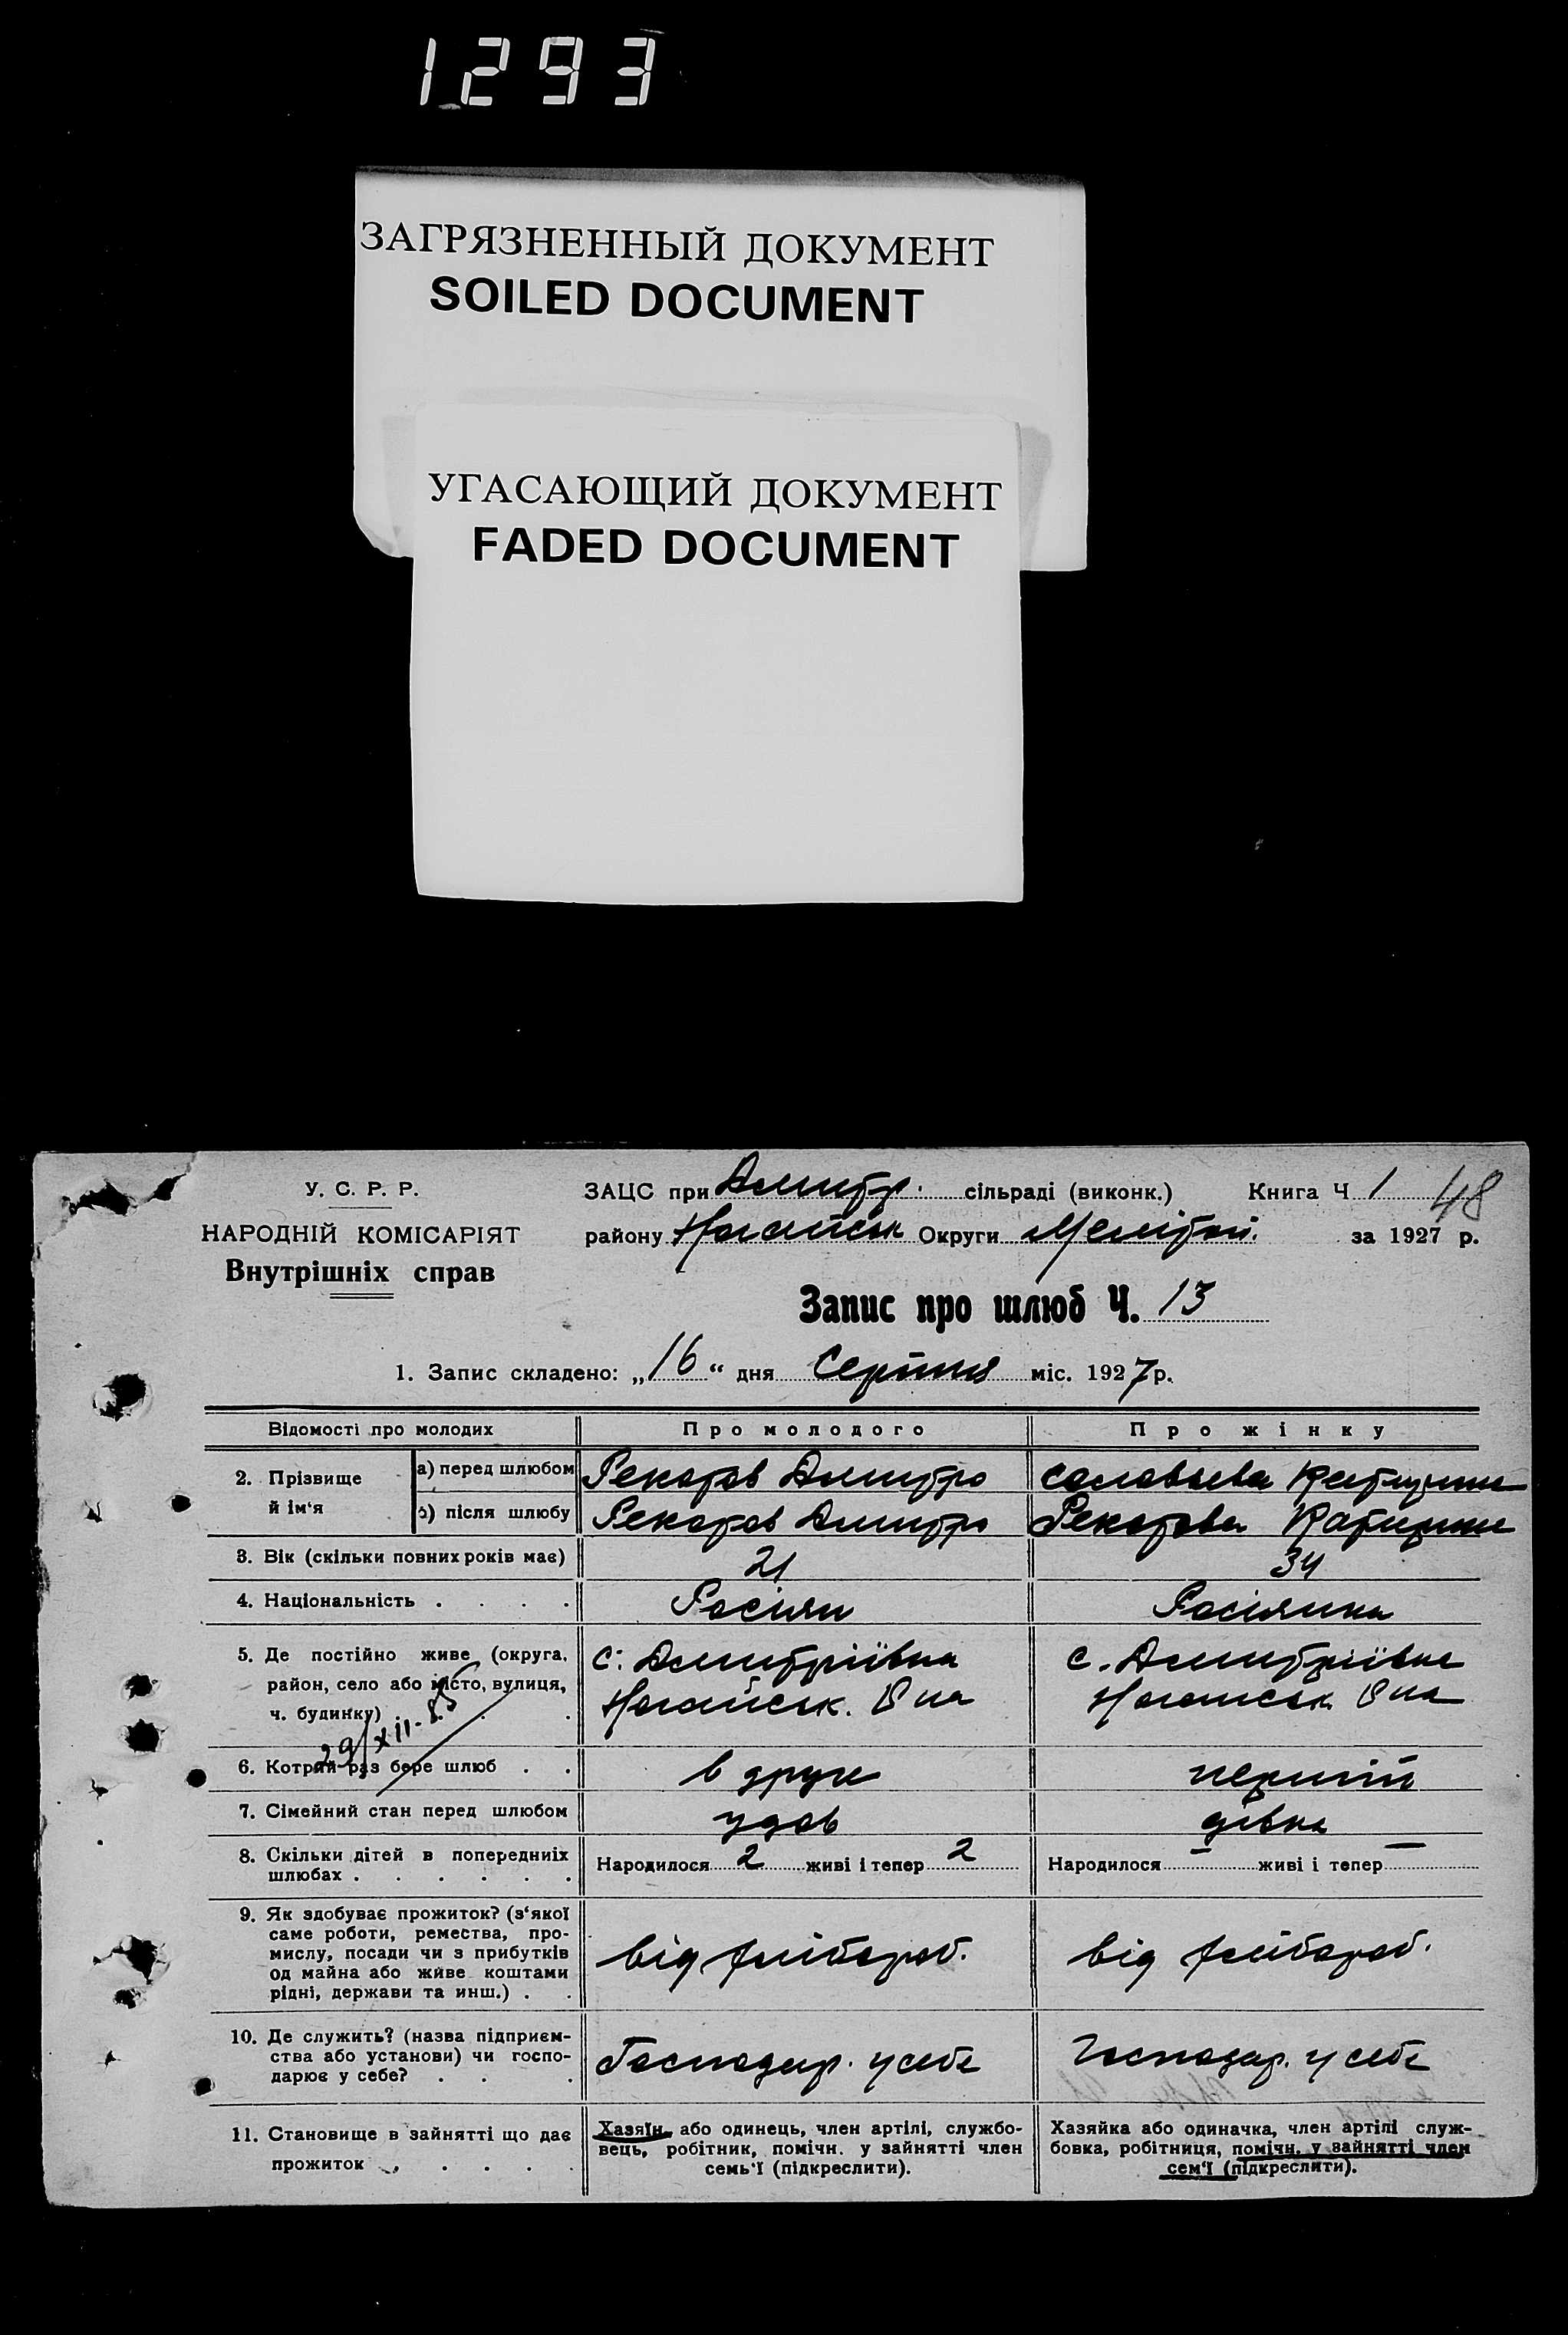 1293
ЗАГРЯЗНЕННЫЙ ДОКУМЕНТ
SOILED DOCUMENT
УГАСАЮЩИЙ ДОКУМЕНТ
FADED DOCUMENT
У. С. Р. Р.
НАРОДНІЙ КОМІСАРІЯТ
Внутрішніх справ
ЗАЦС при Дмитр. сільраді (виконк.) Книга Ч 1 48
району Ногайськ Округи Меліто́п. за 1927 р.
Запис про шлюб Ч. 13
1. Запис складено: „16“ дня Серпня міс. 1927 р.
Відомості про молодих Про молодого Про жінку
2. Прізвище й ім‘я
а) перед шлюбом Рекотов Дмитро Соловьева Катирина
б) після шлюбу Рекотов Дмитро Рекотова Катирина
3. Вік (скільки повних років має) 21 34
4. Національність . . . . Росіян Росіянка
5. Де постійно живе (округа, район, село або місто, вулиця, ч. будинку) . .
с. Дмитріївка
Ногайськ. Р на
с. Дмитріївка
Ногайськ Р на
29/XII-85
6. Котрий раз бере шлюб . . в друге перший
7. Сімейний стан перед шлюбом удов дівка
8. Скільки дітей в попередниіх шлюбах . . . . . .
Народилося 2 живі і тепер 2
Народилося — живі і тепер —
9. Як здобуває прожиток? (з‘якої
саме роботи, ремества, про-
мислу, посади чи з прибутків
од майна або живе коштами
рідні, держави та инш.) . .
від хлібороб.
від хлібороб.
10. Де служить? (назва підприєм-
ства або установи) чи госпо-
дарює у себе? . . .
Господар. у себе
Господар. у себе
11. Становище в зайнятті що дає
прожиток . . . . .
Хазяїн або одинець, член артілі, службо-
вець, робітник, помічн. у зайнятті член
семь‘ї (підкреслити).
Хазяйка або одиначка, член артілі служ-
бовка, робітниця, помічн. у зайнятті член
сем‘ї (підкреслити).